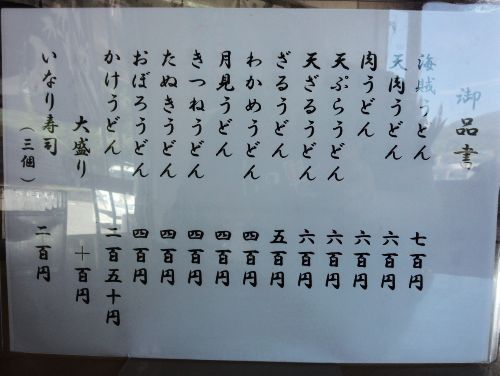 御品書
海賊うどん 七百円
天肉うどん 六百円
肉うどん 六百円
天ぷらうどん 六百円
天ざるうどん 六百円
ざるうどん 五百円
わかめうどん 四百円
月見うどん 四百円
きつねうどん 四百円
たぬきうどん 四百円
おぼろうどん 四百円
かけうどん 二百五十円
大盛り +百円
いなり寿司(三個) 二百円